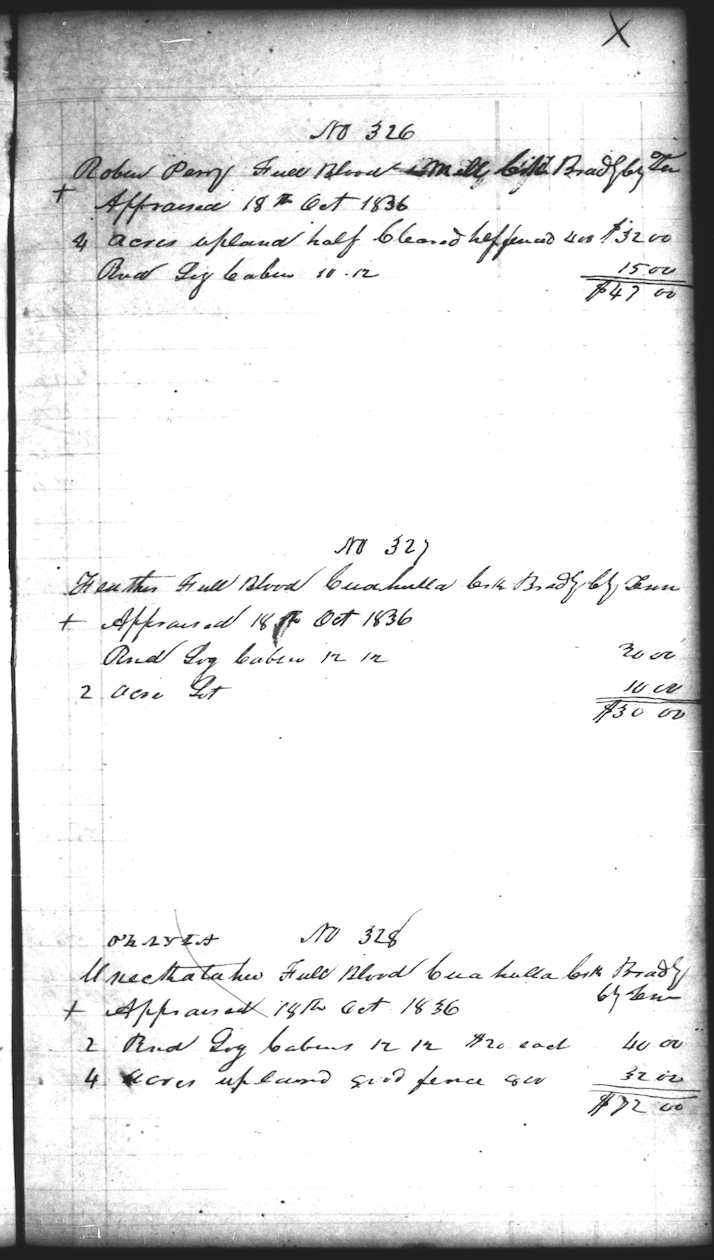 X
No 326
Robin Perry Full Blood Mill Crk Bradly Cty Ten
+ Appraised 18th Oct 1836
4 acres upland half Cleared half fenced $32 00
Rnd Log Cabin 10.12 15 00
$47 00
No 327
Feather Full Blood Cuahulla Crk Bradly Cty Tenn
+ Appraised 18th Oct 1836
Rnd Log Cabin 12 12 20 00
2 acre Lot 10 00
$30 00
No 328
Full Blood Cuahulla Crk Bradly
Cty Tenn
+ Appraised 18th Oct 1836
2 Rnd Log Cabins 12 12 $20 each 40 00
4 acres upland good fence 800 32 00
$72 00